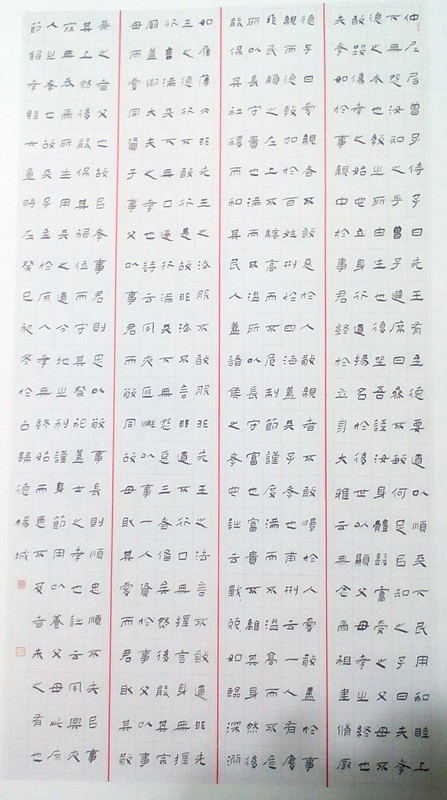 仲尼居曾子侍子曰先王有至德要道以順天下民用和睦上
下無怨汝知之乎曾子避席曰參不敏何足以知之子曰夫孝
德之本也教之所由生也復坐吾語汝身體髮膚受之父母不
敢毀傷孝之始也立身行道揚名於後世以顯父母孝之終也
夫孝始於事親中於事君終於立身大雅云無念爾祖聿脩厥
德子曰愛親者不敢惡於人敬親者不敢慢於人愛敬盡於事
親而德教加於百姓刑於四海蓋天子孝也甫刑云一人有慶
兆民賴之在上不驕高而不危制節謹度滿而不溢高而不危
所以長守貴也滿而不溢所以長守富也富貴不離其身然後
能保其社稷而和其民人蓋諸侯之孝也詩云戰兢如臨深淵
如履薄冰非先王之法服不敢服非先王之法言不敢道非先
王之德行不敢行是故非法不言非道不行口無擇言身無擇
行言滿天下無口過行滿天下無怨惡三者備矣然後能其宗
廟蓋卿大夫之孝也詩云夙夜匪懈以事一人資於事父以事
母而愛同資於事父以事君而敬同故母取其愛而君取其敬
兼之者父也故以孝事君則忠以敬事長則順忠順不失以事
其上然後能保其祿位而守其祭祀蓋士之孝也詩云夙興夜
寐無忝爾所生用天之道分地之利謹身節用以養父母此庶
人之孝也故天子至於庶人孝無終始而患不及者未之有也
節錄孝經六章時在癸巳秋冬於古臨德楊城